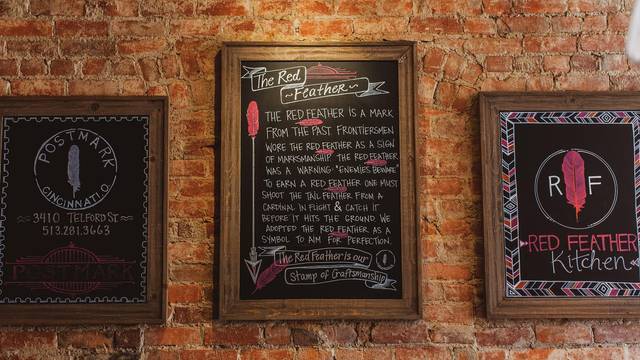 POSTMARK
CINCINNATI.O
3410 TELFORD ST
513.281.3663
POSTMARK
The Red
Feather
THE RED FEATHER IS A MARK
FROM THE PAST. FRONTIERSMEN
WORE THE RED FEATHER AS A SIGN
OF MARKSMANSHIP. THE RED FEATHER
WAS A WARNING "ENEMIES BEWARE"
TO EARN A RED FEATHER ONE MUST
SHOOT THE TAIL FEATHER FROM A
CARDINAL IN FLIGHT & CATCH IT
BEFORE IT HITS THE GROUND. WE
ADOPTED THE RED FEATHER AS A
SYMBOL TO AIM FOR PERFECTION.
The Red Feather is our
Stamp of Craftsmanship
R F
RED FEATHER
Kitchen